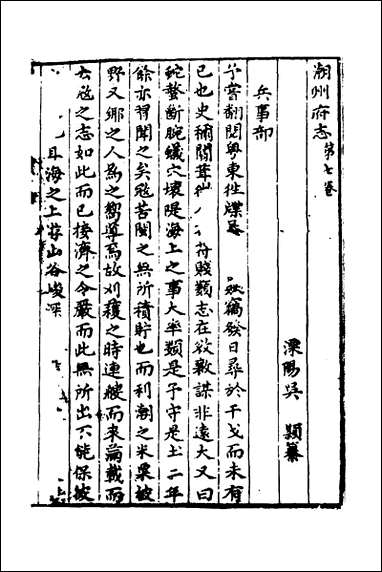 潮州府志 第七卷
溧陽吳 頴纂
兵事部
予嘗翻閱粵東徃牒
竊發日尋於干戈而未有
已也史稱閩
苻賤類志在欲斂謀非遠大又曰
蛇螫斷腕蟻穴壞隄海上之事大率類是予守是土二年
餘亦習聞之矣宼苦閩之無所積貯也而利潮之米粟被
野又鄉之人為之嚮導焉故刈穫之時連艘而來滿載而
去宼之志如此而已接濟之令嚴而此無所出不能保彼
且海之上
山谷峻深